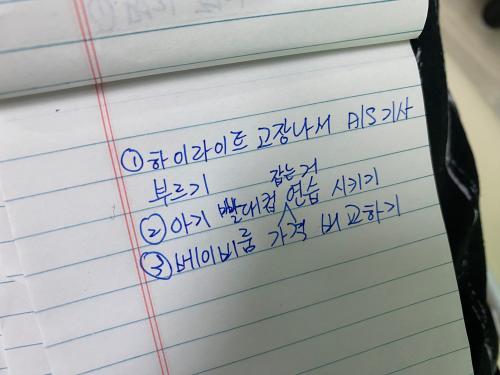 ① 하이라이트 고장나서 A/S 기사
부르기
잡는거
② 아기 빨대컵 연습 시키기
③ 베이비룸 가격 비교하기